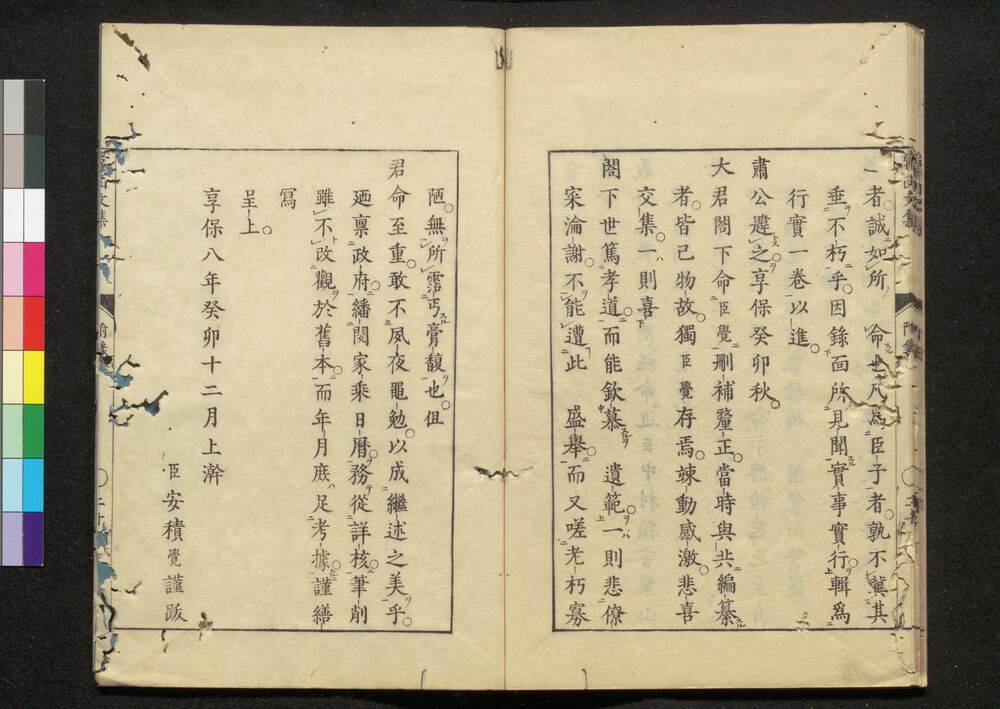 者誠如所　命也凡為臣子者孰不冀其
垂不朽乎因錄面所見聞實事實行輯為
行實一卷以進
肅公遷之享保癸卯秋
大君閤下命臣覺刪補釐正當時與共編纂
者皆已物故獨臣覺存焉竦動感激悲喜
交集一則喜
閤下世篤孝道而能欽慕　遺範一則悲僚
寀淪謝不能遭此　盛舉而又嗟老朽寡
陋無所霑丐膏馥也但
君命至重敢不夙夜黽勉以成繼述之美乎
廼稟政府繙閱家乘日曆務從詳核筆削
雖不改觀於舊本而年月庶足考據謹繕
寫
呈上
享保八年癸卯十二月上澣
臣安積覺謹跋